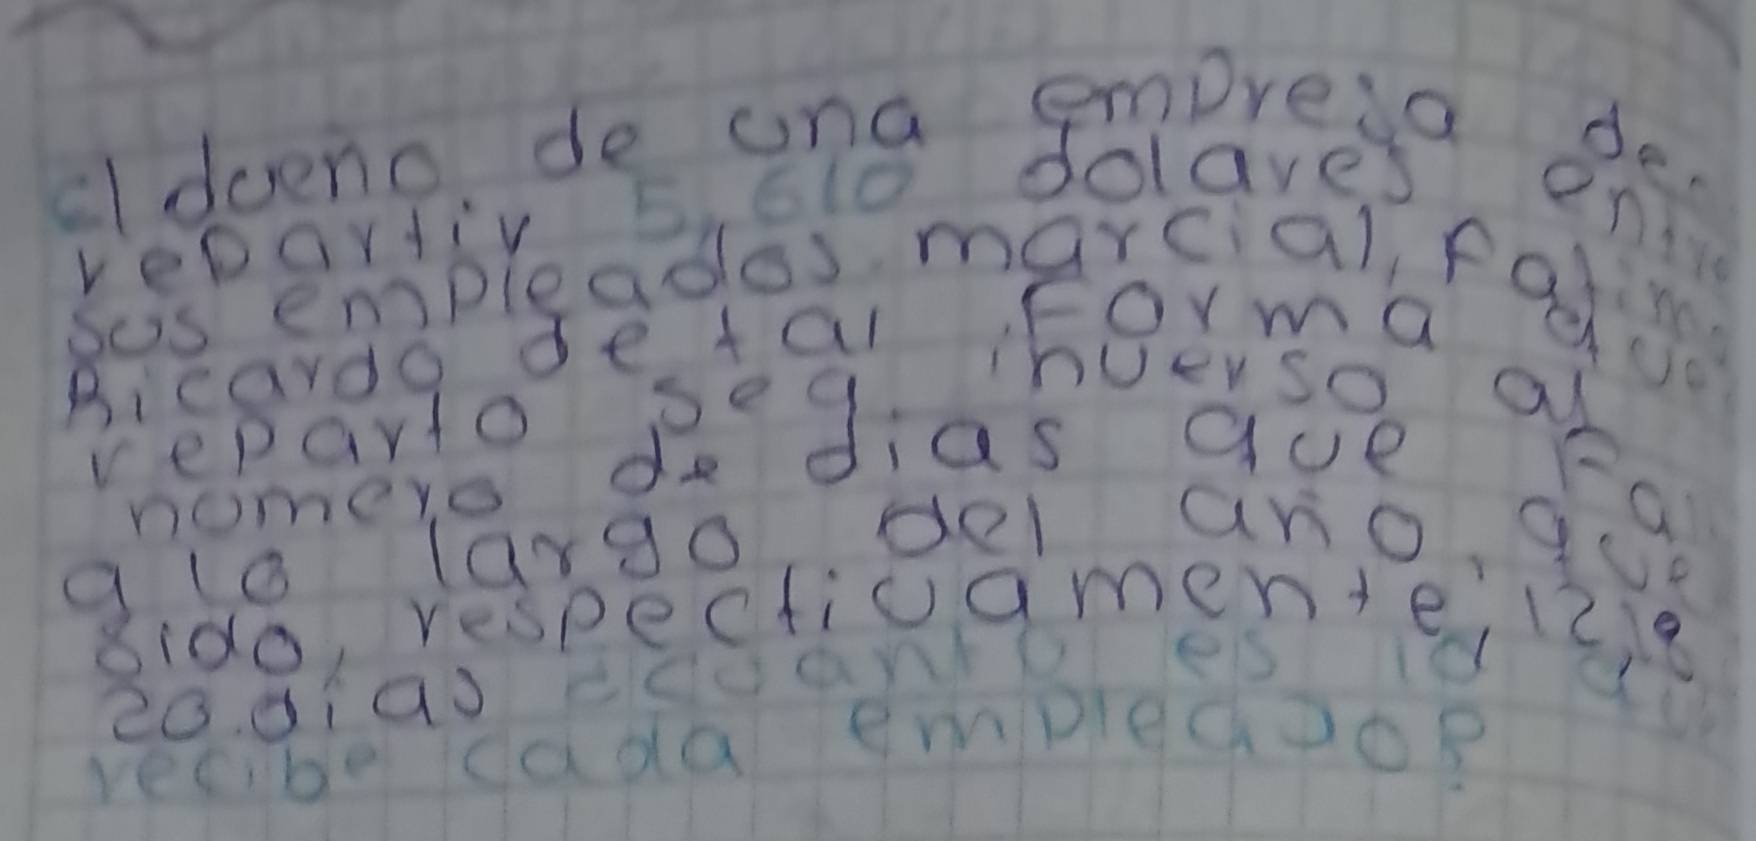 el dueño de una empresa de
repartir 5,610 dolares entre
sus empleados marcial, Fatim
Ricardo de tal Forma que
reparto sea inverso al
numero de dias que Fa
a lo largo del año, que
sido, respectivamente, 12, 18
20 dias ¿cuanto es la
recibe cada empleado?